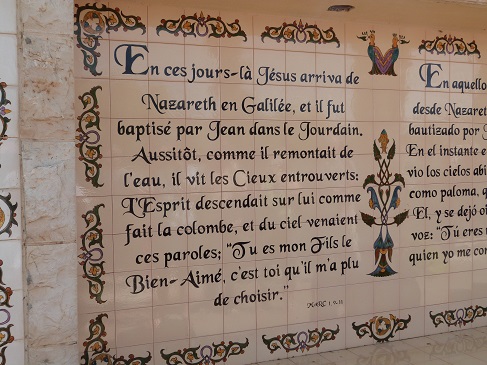 En ces jours-là Jésus arriva de
Nazareth en Galilée, et il fut
baptisé par Jean dans le Jourdain.
Aussitôt, comme il remontait de
l'eau, il vit les Cieux entrouverts:
L'Esprit descendait sur lui comme
fait la colombe, et du ciel venaient
ces paroles; "Tu es mon Fils le
Bien-Aimé, c'est toi qu'il m'a plu
de choisir."
MARC 1, 9, 11
En aquello
desde Nazaret
bautizado por
En el instante e
vio los cielos abi
como paloma, q
El, y se dejó oi
voz: "Tú eres
quien yo me co